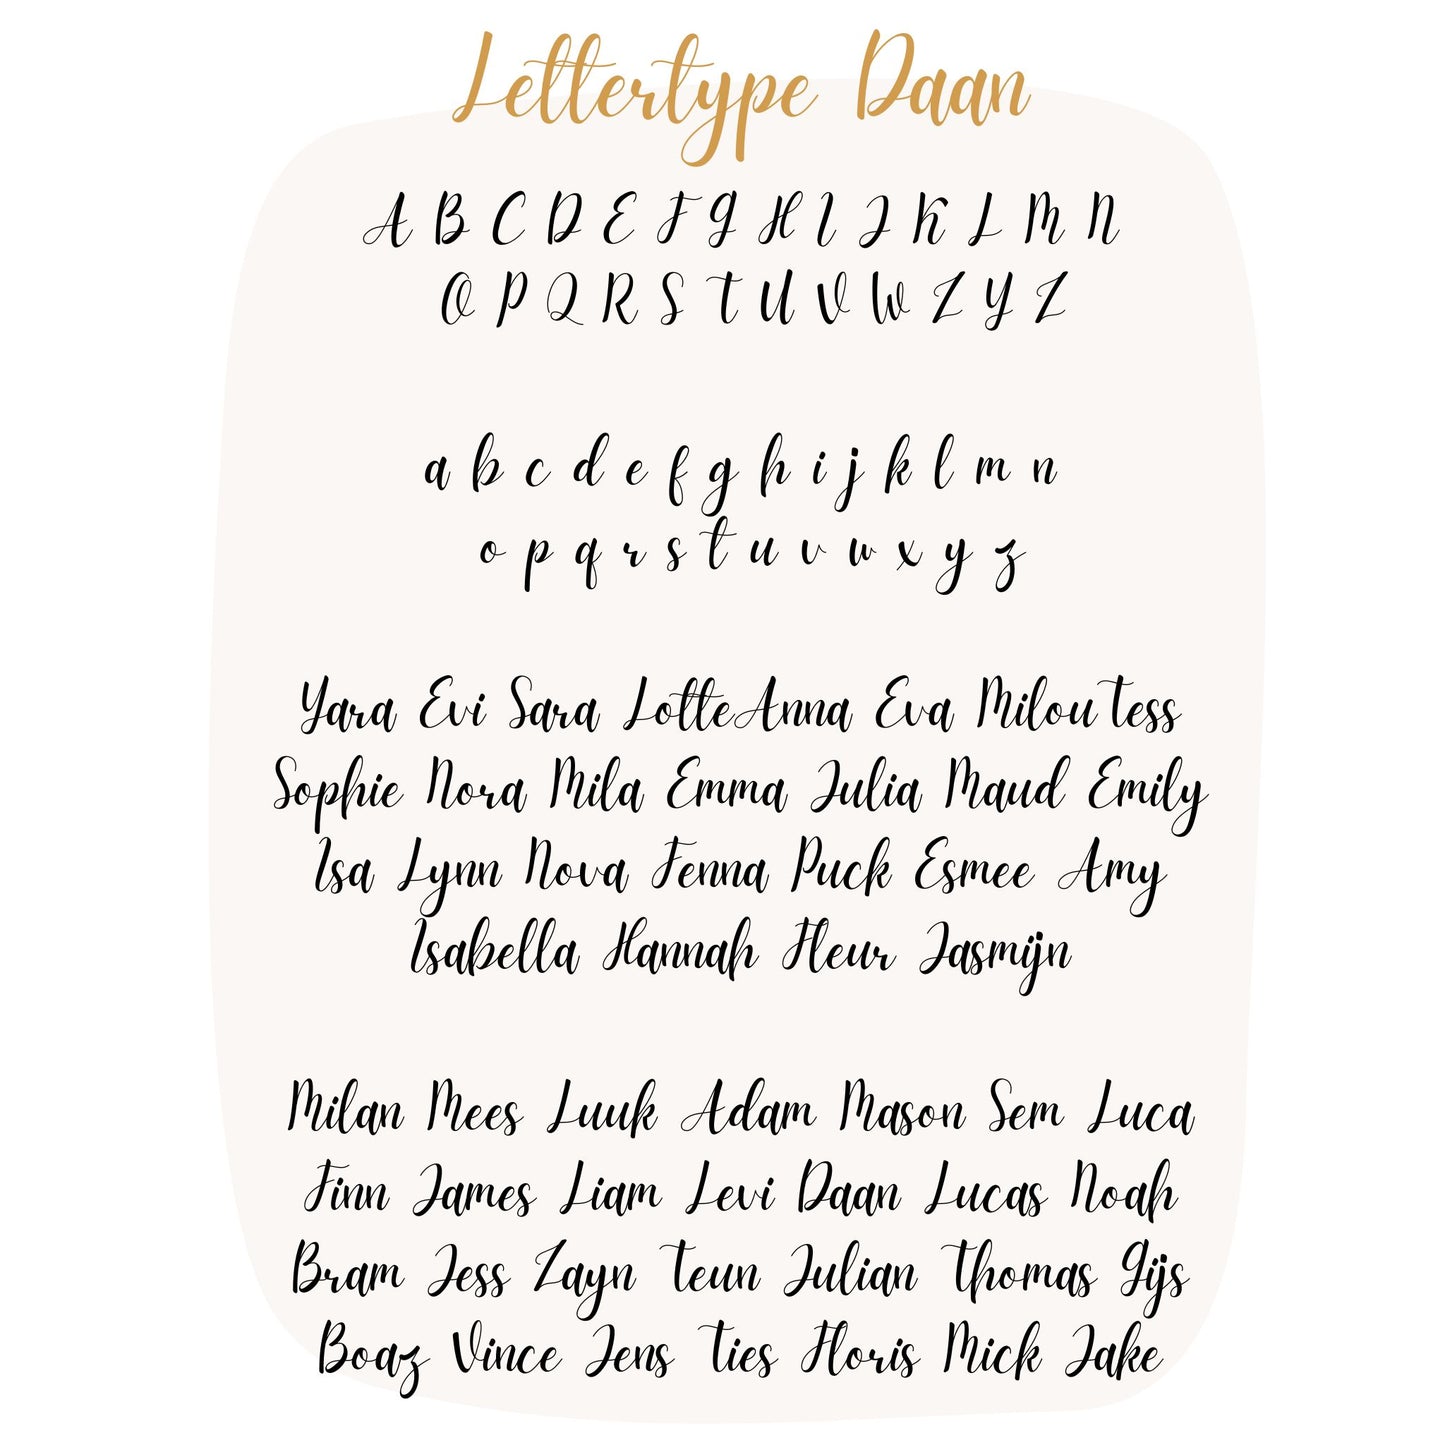 Lettertype Daan
A B C D E F G H I J K L M N
O P Q R S T U V W Z Y Z
a b c d e f g h i j k l m n
o p q r s t u v w x y z
Yara Evi Sara Lotte Anna Eva Milou Tess
Sophie Nora Mila Emma Julia Maud Emily
Isa Lynn Nova Fenna Puck Esmee Amy
Isabella Hannah Fleur Jasmijn
Milan Mees Luuk Adam Mason Sem Luca
Finn James Liam Levi Daan Lucas Noah
Bram Jess Zayn Teun Julian Thomas Gijs
Boaz Vince Jens Ties Floris Mick Jake